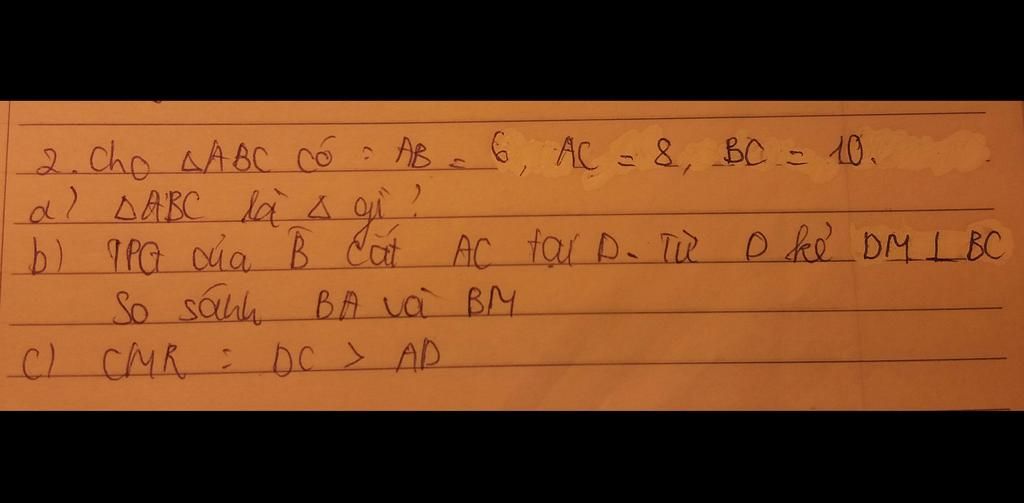 2. Cho △ABC có : AB = 6, AC = 8, BC = 10.
a) △ABC là △ gì ?
b) TPG của B̂ cắt AC tại D. Từ D kẻ DM ⊥ BC
So sánh BA và BM
c) CMR : DC > AD